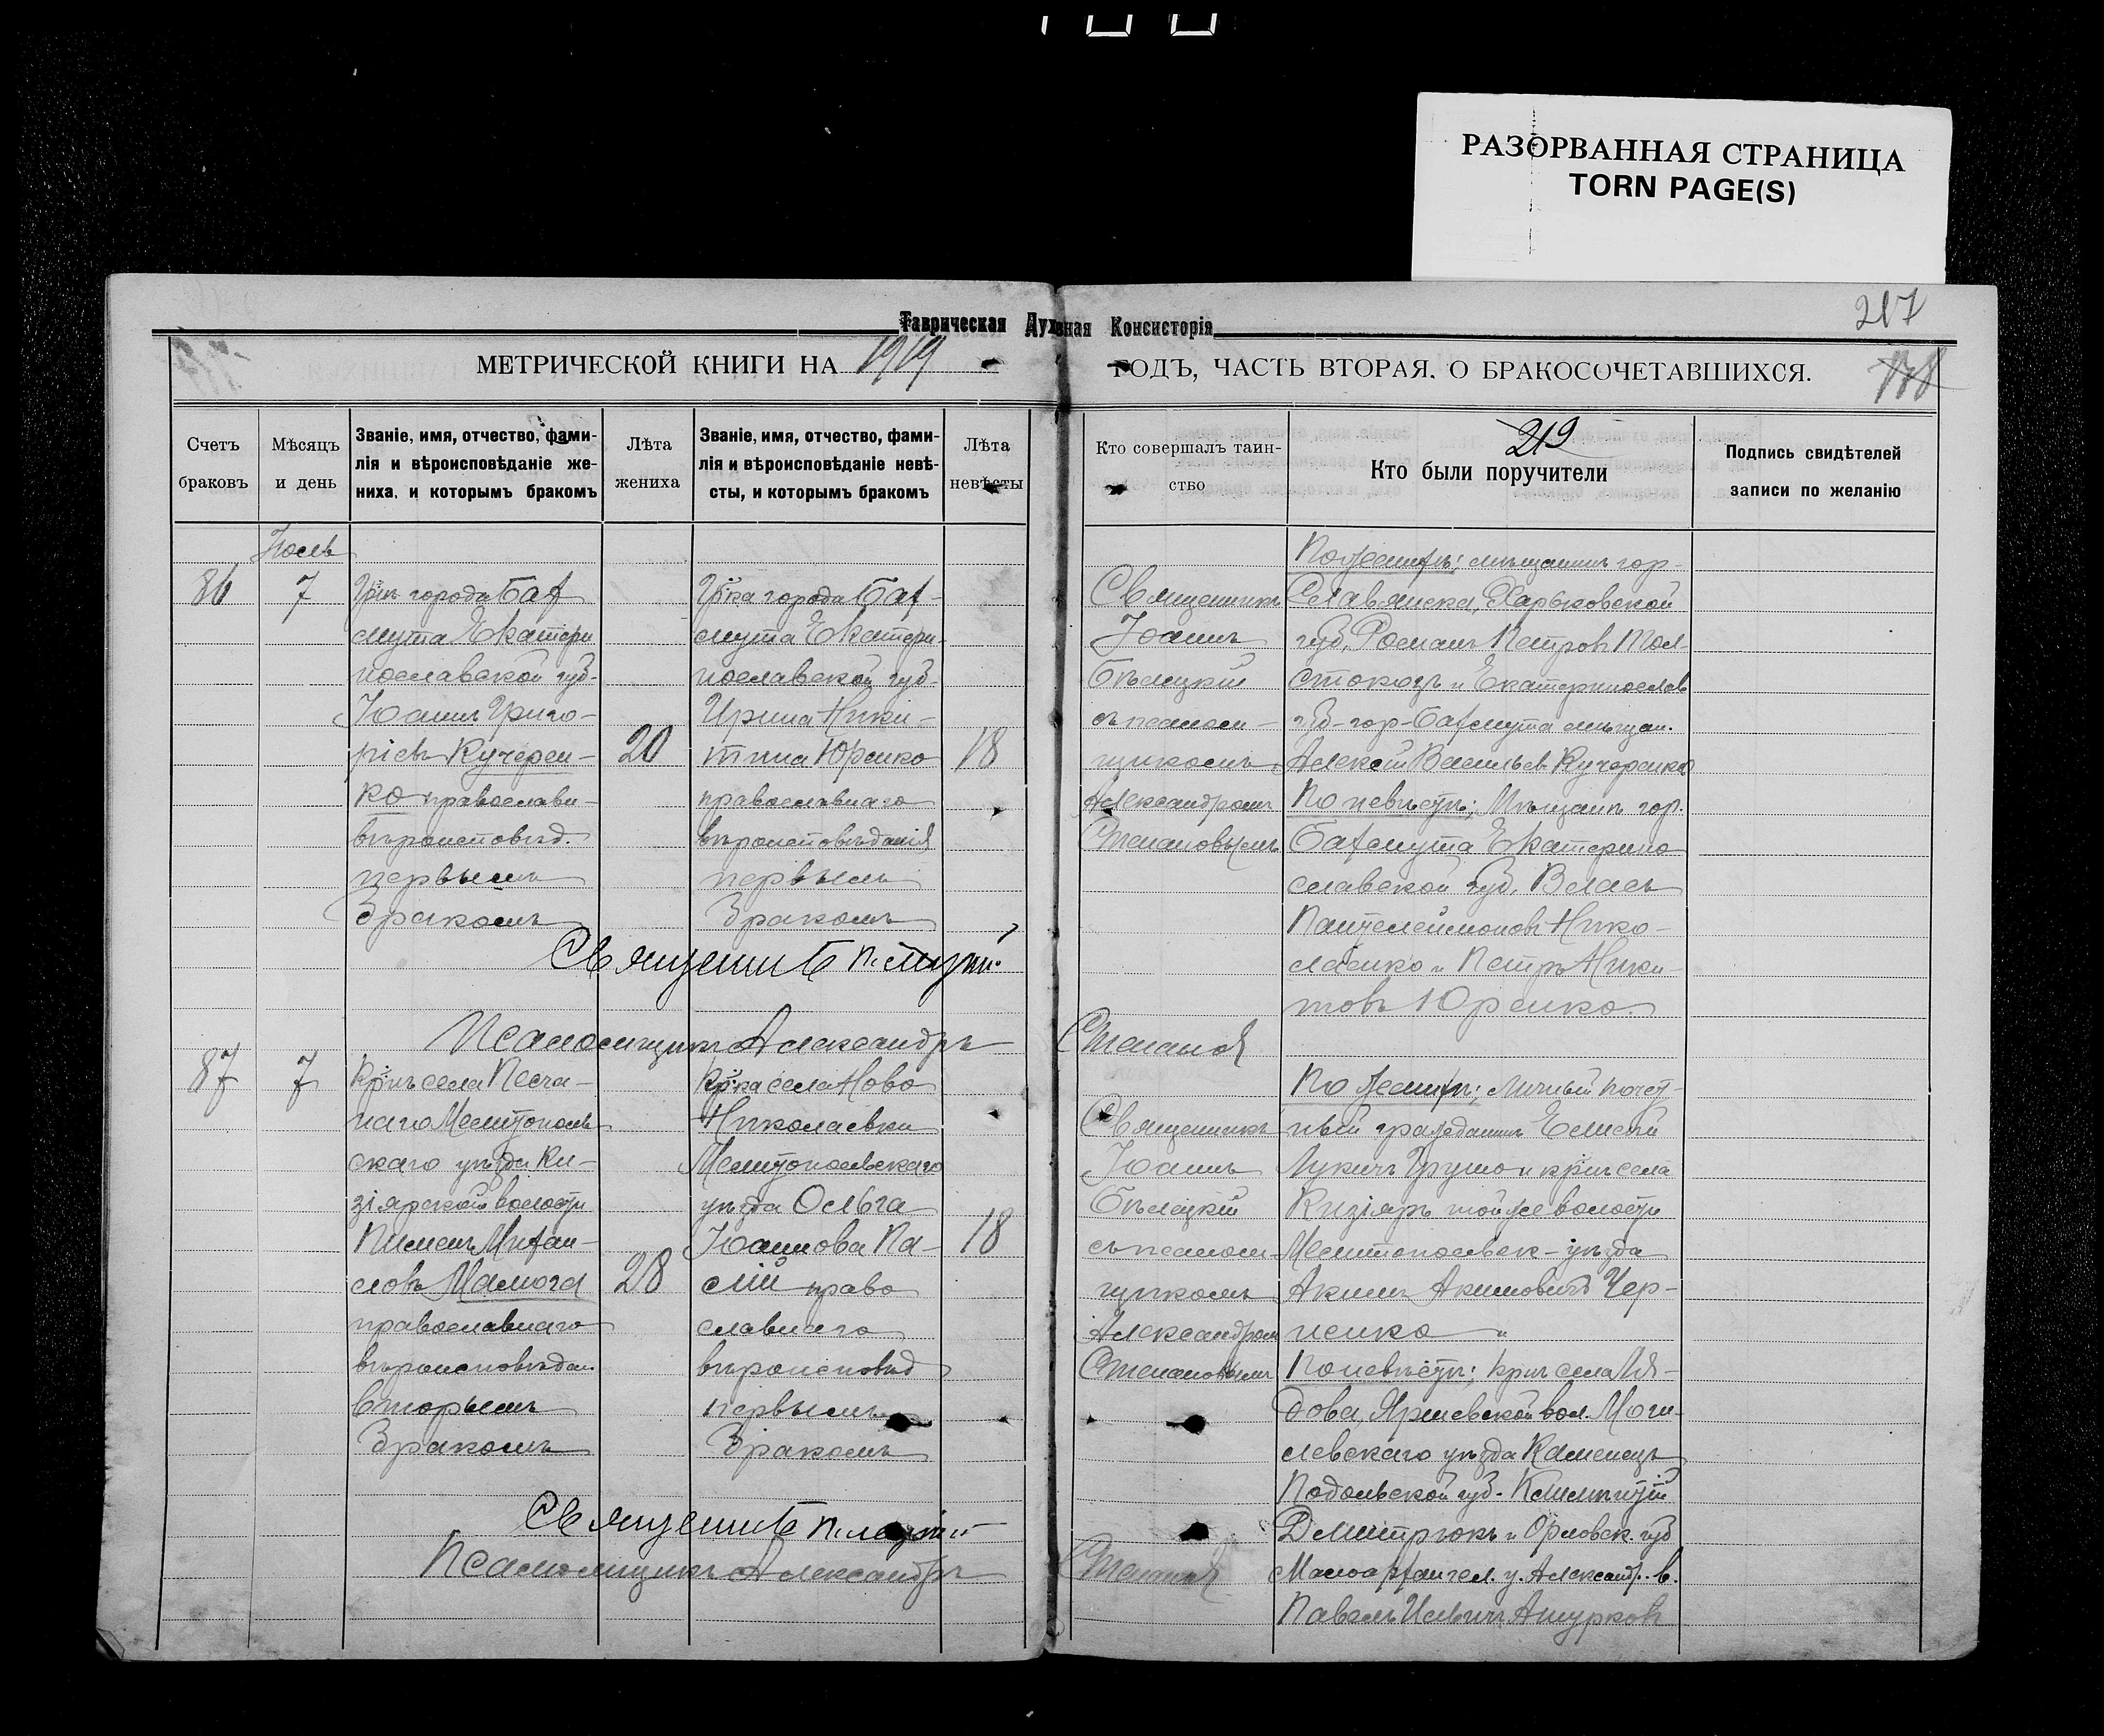 РАЗОРВАННАЯ СТРАНИЦА
TORN PAGE(S)
217
Таврическая Духовная Консисторія
МЕТРИЧЕСКОЙ КНИГИ НА 1919 ГОДЪ, ЧАСТЬ ВТОРАЯ, О БРАКОСОЧЕТАВШИХСЯ.
Счетъ браковъ
Мѣсяцъ и день
Званіе, имя, отчество, фами-
лія и вѣроисповѣданіе же-
ниха, и которымъ бракомъ
Лѣта жениха
Званіе, имя, отчество, фами-
лія и вѣроисповѣданіе невѣ-
сты, и которымъ бракомъ
Лѣта невѣсты
Кто совершалъ таин-
ство
219
Кто были поручители
Подпись свидѣтелей
записи по желанію
86
7
Гр-нъ города Бах
мута Екатери
нославской губ-
Іоаннъ Григо-
ріевъ Кучерен-
ко православн-
вѣроисповѣд.
первымъ
бракомъ
20
Гр-ка города Бах-
мута Екатери-
нославской губ-
Ирина Ники-
тина Юренко
православнаго
вѣроисповѣданія
первымъ
бракомъ
18
Священникъ
Іоаннъ
Бѣлицкій
съ псалом-
щикомъ
Александромъ
Степановымъ
По женихѣ: мѣщанинъ гор-
Славянска, Харьковской
губ. Романъ Петровъ Тол-
стокозъ и Екатеринослав
губ-гор-Бахмута мѣщан.
Алексѣй Васильев Кучеренко
По невѣстѣ; Мѣщанъ гор.
Бахмута Екатерино
славской губ. Власъ
Пантелеймоновъ Нико-
лаенко и Петръ Ники-
товъ Юренко.
Священник
Псаломщикъ Александръ Степанов
87
7
Кр-нъ села Песча-
наго Мелитополь
скаго уѣзда Ки-
зіярской волости
Пименъ Михаи-
ловъ Мамога
православнаго
вѣроисповѣдан.
вторымъ
бракомъ
28
Кр-ка села Ново
Николаевки
Мелитопольскаго
уѣзда Ольга
Іоаннова Па-
лій право
славнаго
вѣроисповѣд
первымъ
бракомъ
18
Священникъ
Іоаннъ
Бѣлицкій
съ псалом-
щикомъ
Александром
Степановымъ
По женихѣ; Личный почет-
ный гражданинъ Елисей
Лукичъ Грушо и кр-нъ села
Кизіяръ той же волости
Мелитопольск-уѣзда
Акимъ Акимовичъ Чер-
ненко
По невѣстѣ; кр-нъ села Ля-
дова, Яришевской вол. Моги-
левскаго уѣзда Каменецъ
Подольской губ. Климентій
Дмитрюкъ и Орловск. губ
Малоархангел. у. Александр. в.
Павелъ Ильичъ Ашурковъ
Священник
Псаломщикъ Александръ Степанов